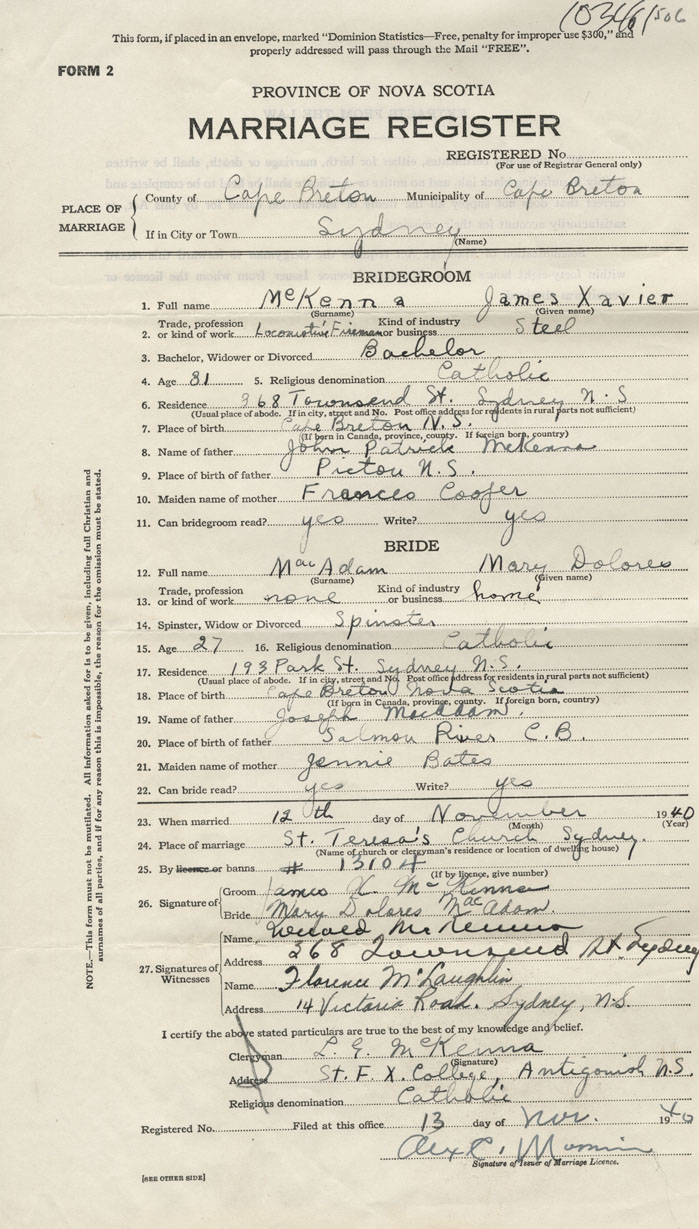 This form, if placed in an envelope, marked “Dominion Statistics—Free, penalty for improper use $300,” and
properly addressed will pass through the Mail “FREE”.
FORM 2
PROVINCE OF NOVA SCOTIA
MARRIAGE REGISTER
REGISTERED No.
(For use of Registrar General only)
PLACE OF MARRIAGE
County of Cape Breton Municipality of Cape Breton
If in City or Town Sydney
(Name)
BRIDEGROOM
1. Full name McKenna James Xavier
(Surname) (Given name)
2. Trade, profession or kind of work Locomotive Fireman Kind of industry or business Steel
3. Bachelor, Widower or Divorced Bachelor
4. Age 31 5. Religious denomination Catholic
6. Residence 368 Townsend St. Sydney N.S
(Usual place of abode. If in city, street and No. Post office address for residents in rural parts not sufficient)
7. Place of birth Cape Breton N.S.
(If born in Canada, province, county. If foreign born, country)
8. Name of father John Patrick McKenna
9. Place of birth of father Pictou N.S.
10. Maiden name of mother Frances Coofer
11. Can bridegroom read? yes Write? yes
BRIDE
12. Full name MacAdam Mary Dolores
(Surname) (Given name)
13. Trade, profession or kind of work none Kind of industry or business home
14. Spinster, Widow or Divorced Spinster
15. Age 27 16. Religious denomination Catholic
17. Residence 193 Park St. Sydney N.S.
(Usual place of abode. If in city, street and No. Post office address for residents in rural parts not sufficient)
18. Place of birth Cape Breton Nova Scotia
(If born in Canada, province, county. If foreign born, country)
19. Name of father Joseph MacAdam.
20. Place of birth of father Salmon River C.B.
21. Maiden name of mother Jennie Bates
22. Can bride read? yes Write? yes
23. When married 12th day of November 1940
(Month) (Year)
24. Place of marriage St. Teresa's Church Sydney.
(Name of church or clergyman's residence or location of dwelling house)
25. By licence or banns # 13104
(If by licence, give number)
26. Signature of
Groom James X. McKenna
Bride Mary Dolores MacAdam.
27. Signatures of Witnesses
Name McKenna
Address 368 Townsend St. Sydney
Name Florence McLaughlin
Address 14 Victoria Road. Sydney, N.S.
I certify the above stated particulars are true to the best of my knowledge and belief.
Clergyman L. G. McKenna
(Signature)
Address St. F. X. College, Antigonish N.S.
Religious denomination Catholic
Registered No. Filed at this office 13 day of Nov. 1940
Signature of Issuer of Marriage Licence.
[SEE OTHER SIDE]
NOTE.—This form must not be mutilated. All information asked for is to be given, including full Christian and
surnames of all parties, and if for any reason this is impossible, the reason for the omission must be stated.